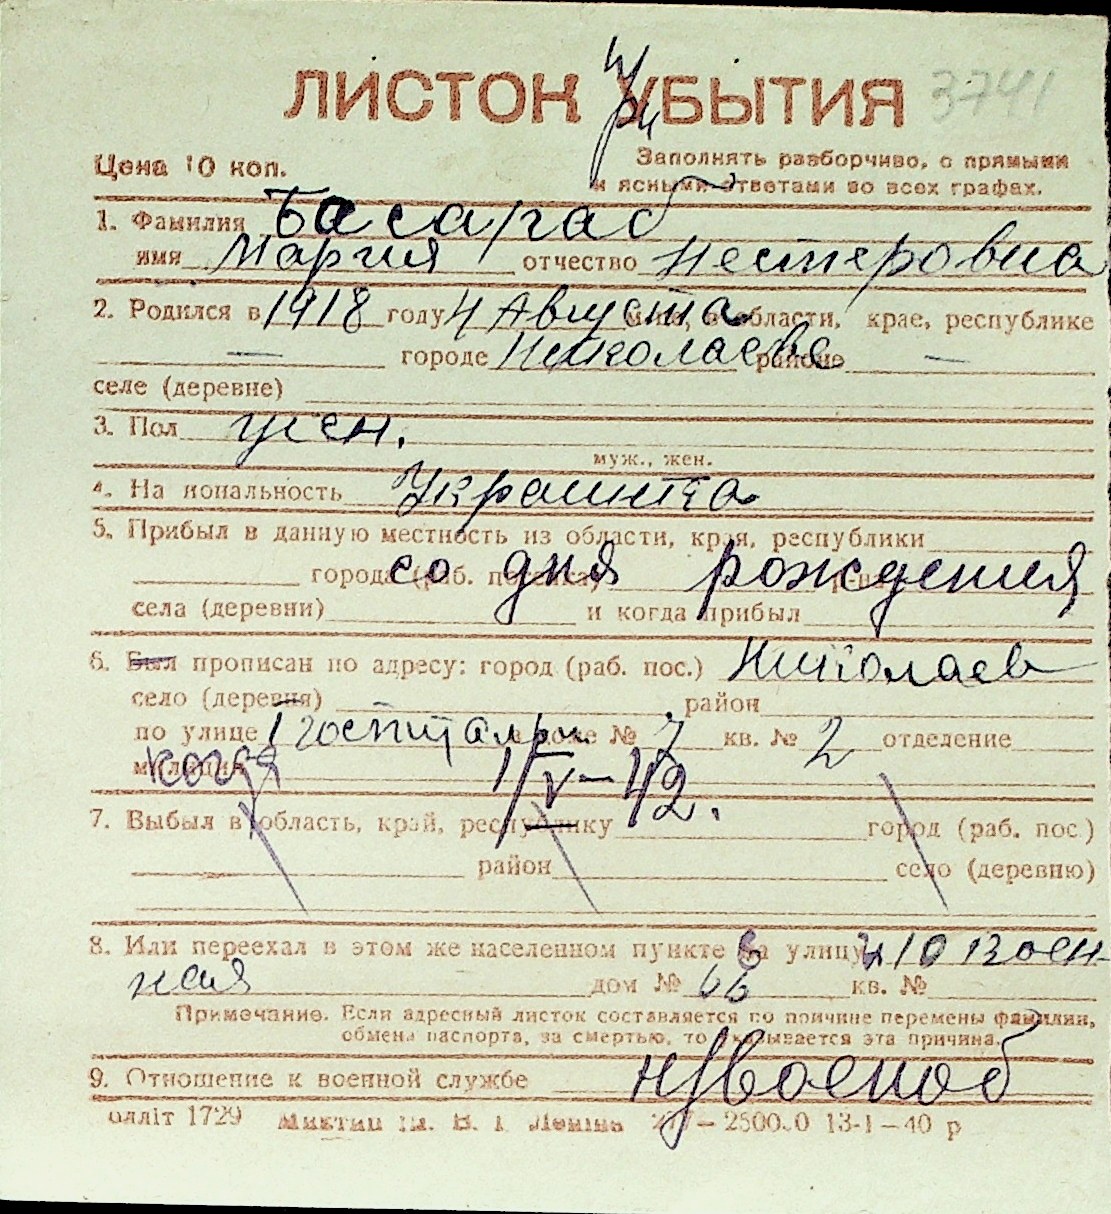 ЛИСТОК УБЫТИЯ 3741
Цена 10 коп. Заполнять разборчиво, с прямыми
и ясными ответами во всех графах.
1. Фамилия Басараб
имя Мария отчество Нестеровна
2. Родился в 1918 году 4 Августа области, крае, республике
— городе Николаеве районе —
селе (деревне)
3. Пол жен.
муж., жен.
4. На иональность Украинка
5. Прибыл в данную местность из области, края, республики
города (раб. поселка) со дня рождения
села (деревни) и когда прибыл
6. Был прописан по адресу: город (раб. пос.) Николаев
село (деревня) район
по улице 1 Госпитальн. доме № 7 кв. № 2 отделение
милиции когда 1/IV-42.
7. Выбыл в область, край, республику город (раб. пос.)
район село (деревню)
8. Или переехал в этом же населенном пункте на улицу 10 Воен-
ная дом № 66 кв. №
Примечание. Если адресный листок составляется по причине перемены фамилии,
обмена паспорта, за смертью, то указывается эта причина.
9. Отношение к военной службе н/военоб
олліт 1729 Миктип ім. В. І. Леніна 13-І-40 р